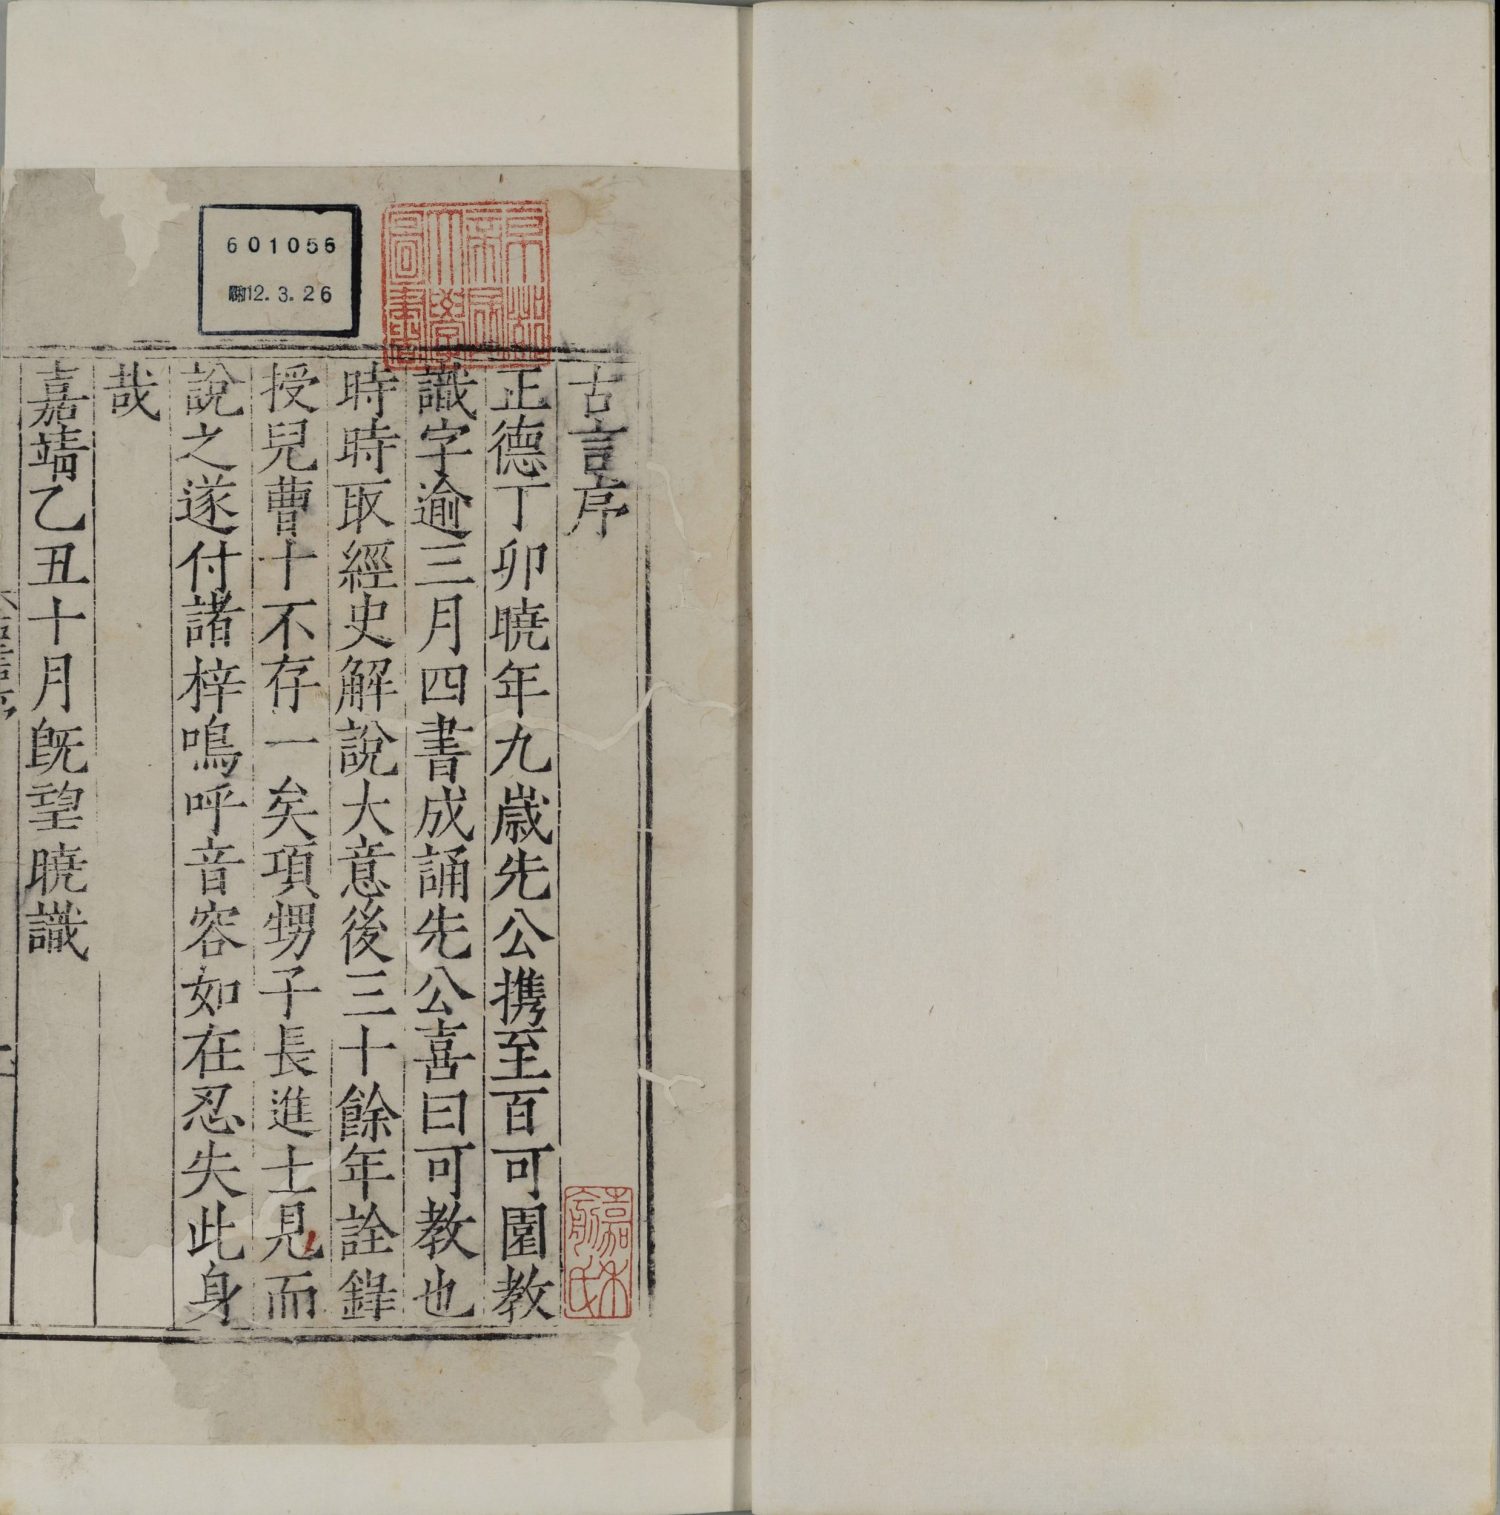 古言序
正德丁卯曉年九歲先公携至百可園教
識字逾三月四書成誦先公喜曰可教也
時時取經史解說大意後三十餘年詮錄
授兒曹十不存一矣項甥子長進士見而
說之遂付諸梓嗚呼音容如在忍失此身
哉
嘉靖乙丑十月旣望曉識
601056
12.3.26
京都帝國大學圖書
嘉禾俞氏